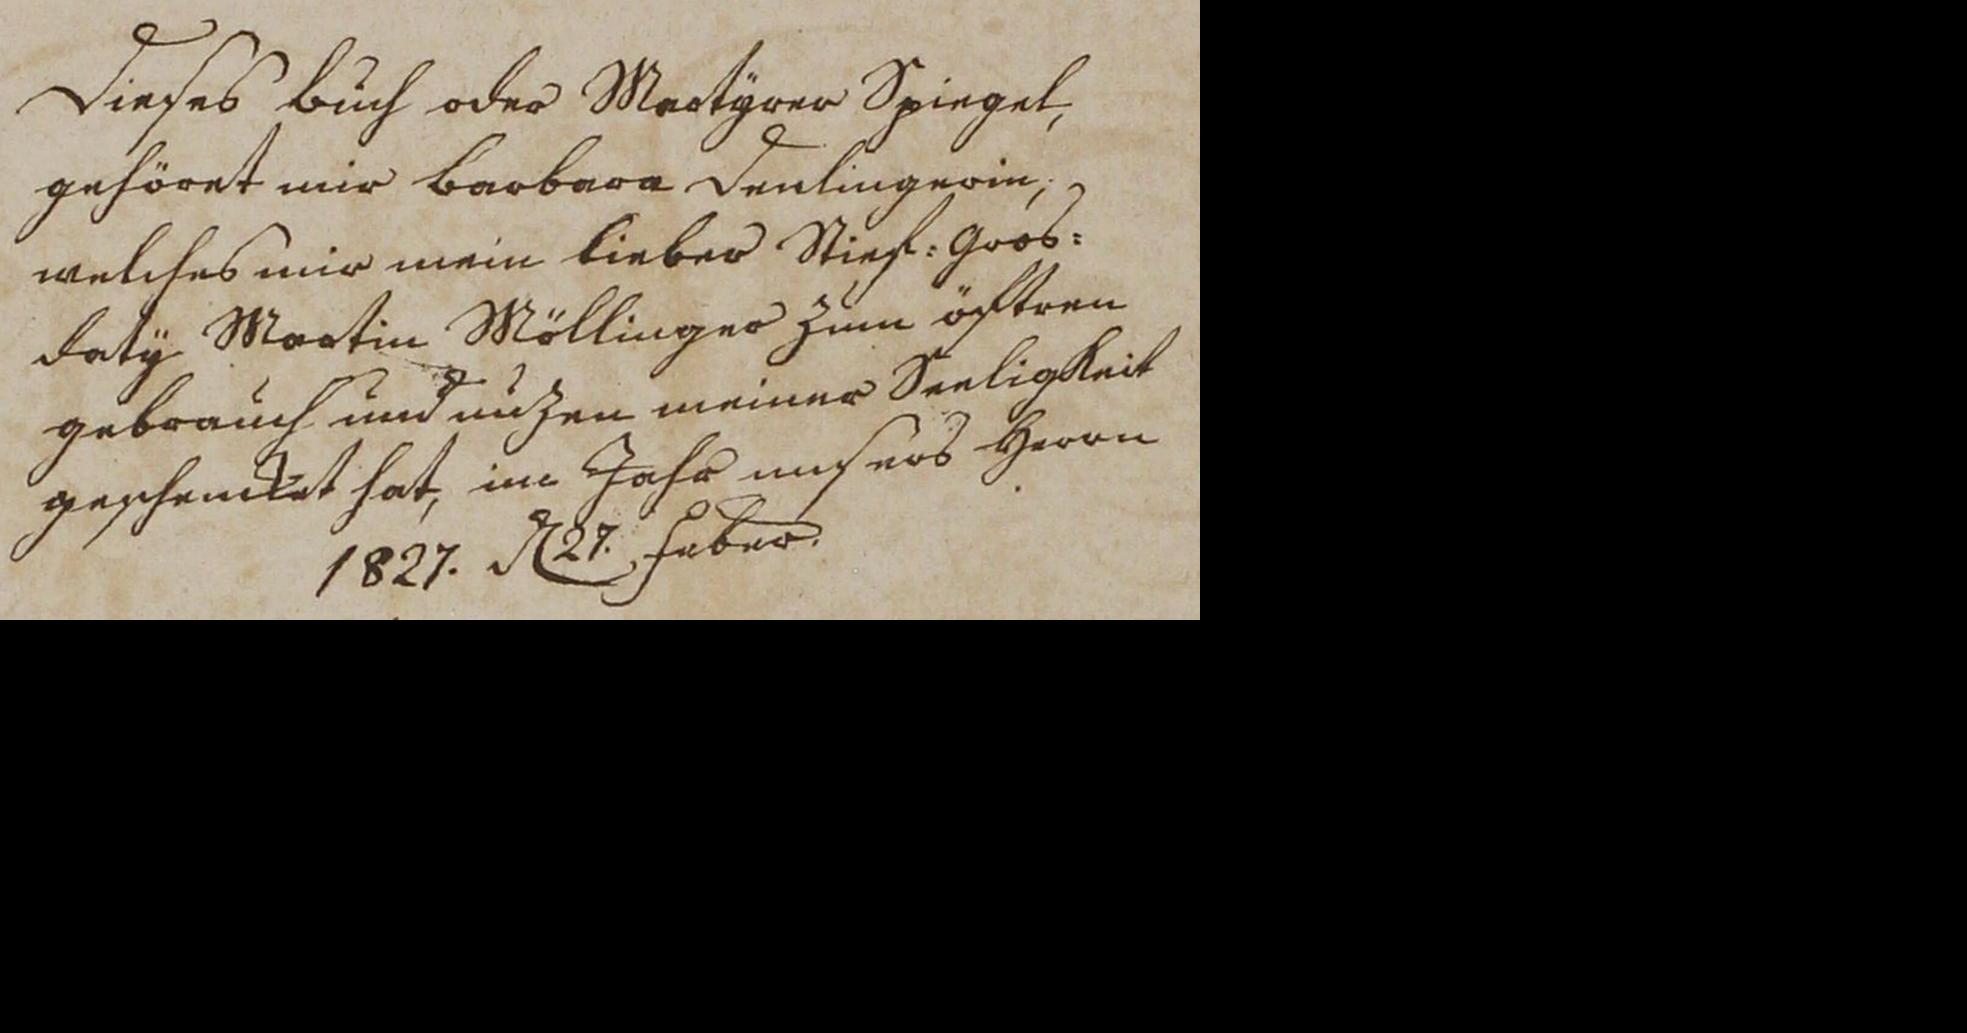 Dieses Buch oder Martÿrer Spiegel,
gehöret mir Barbara Denlingerin,
welches mir mein lieber Stief: Gros:
datÿ Martin Möllinger zum öftren
gebrauch und nuzen meiner Seeligkeit
geschencket hat, im Jahr unsers Herrn
1827. d 27. Feber.